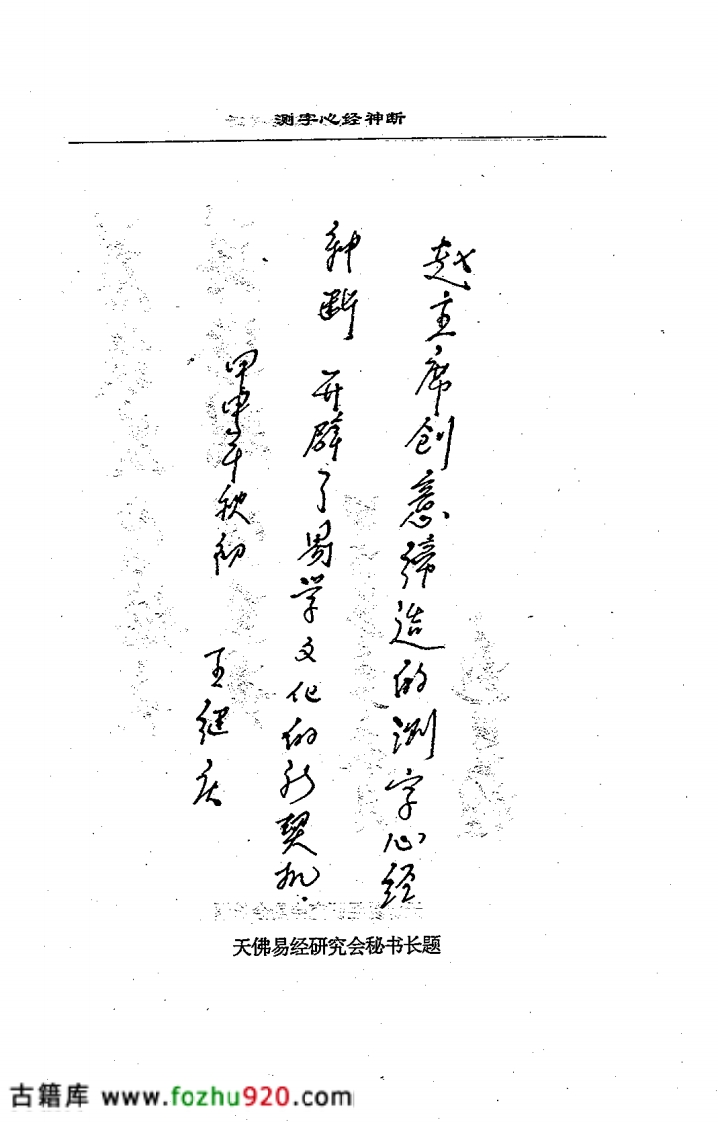 测字心经神断
赵主席创意缔造的测字心经
神断 开辟了易学文化的新契机.
甲申年秋初 王继庆
天佛易经研究会秘书长题
古籍库 www.fozhu920.com